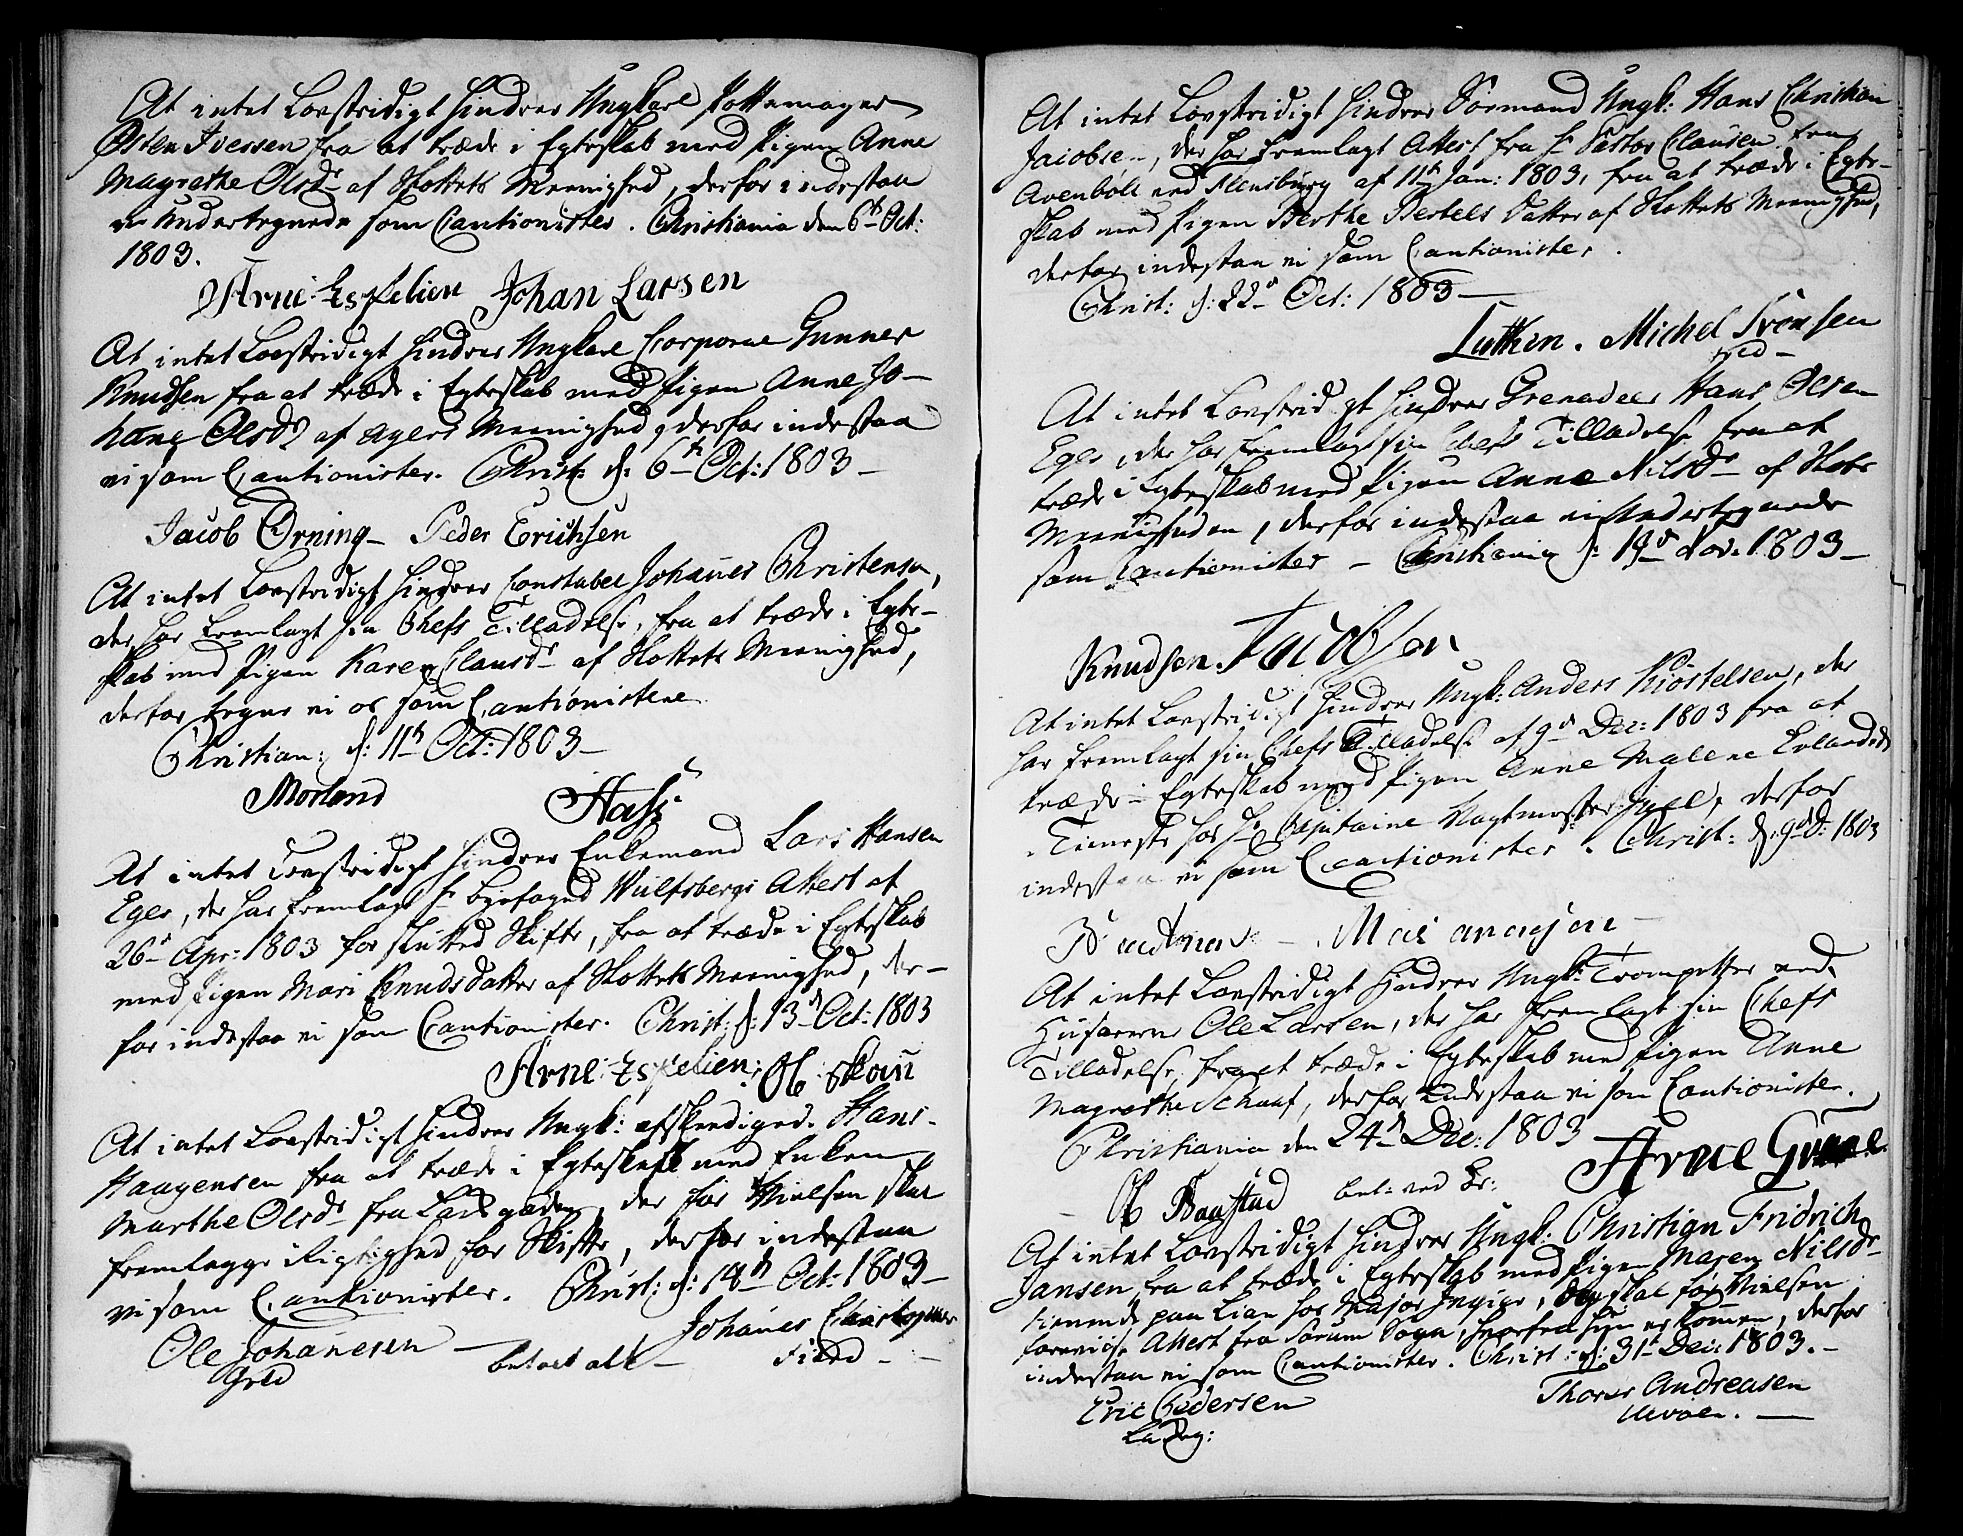 At intet Lovstridigt hindrer Ungkarl Pottemager
Osten Iversen fra at træde i Egteskab med Pigen Anne
Magrethe Olsdr af Slottets Meenighed, derfor indestaa
vi Undertegnede som Cautionister. Christiania den 6th Oct:
1803.
Arne Espelien Johan Larsen
At intet Lovstridigt hindrer Ungkarl Corporal Gunner
Knudsen fra at træde i Egteskab med Pigen Anne Jo-
hane Olsdr af Agers Meenighed, derfor indestaa
vi som Cautionister. Christ: d: 6th Oct: 1803 –
Jacob Örning – Peder Erichsen
At intet Lovstridigt hindrer Constabel Johanes Christensen,
der har fremlagt sin Chefs Tilladelse, fra at træde i Egte-
skab med Pigen Karen Clausdr af Slottets Meenighed,
derfor tegne vi os som Cautionistere
Christian: d: 11th Oct: 1803 –
Morland
At intet Lovstridigt hindrer Enkemand Lars Hansen
Eger, der har fremlagt Hr Byefoged Wulfsbergs Attest af
26d Apr: 1803 for slutted Skifte, fra at træde i Egteskab
med Pigen Mari Knuds Datter af Slottets Meenighed, der-
for indestaa vi som Cautionister. Christ: d: 13d Oct: 1803
Arne Espelien Skou
At intet Lovstridigt hindrer Ungk: afskediged Hans
Haagensen fra at træde i Egteskab med Enken
Marthe Olsdr fra Ladegaden, der før Vielsen skal
fremlægge Rigtighed for Skifte, derfor indestaa
vi som Cautionister. Christ: d: 18th Oct: 1803 –
Ole Johanesen – Johanes
betalt alt –
At intet Lovstridigt hindrer Formand Ungk: Hans Christian
Jacobsen, der har fremlagt Attest fra Hr Pastor Clausen fra
Avenböll ved Flensburg af 11th Jan: 1803, fra at træde i Egte-
skab med Pigen Berthe Bertels Datter af Slottets Meenighed,
derfor indestaa vi som Cautionister.
Christ: d: 22d Oct: 1803 –
Lutken. Michel Svensen
At intet Lovstridigt hindrer Grenadeer Hans Olsen
Eger, der har fremlagt sin Chefs Tilladelse fra at
træde i Egteskab med Pigen Anne Nilsdr af Slots
Meenigheden, derfor indestaa vi Undertegnede
som Cautionister – Christiania d: 19d Nov: 1803 –
Knudsen. Jacobsen
At intet Lovstridigt hindrer Ungk: Anders Kiöstelsen, der
har fremlagt sin Chefs Tilladelse af 9d Dec: 1803 fra at
træde i Egteskab med Pigen Anne Malene Erlandsdr
i Tieneste hos Hr Capitaine Vagtmester Juel, derfor
indestaa vi som Cautionister. Christ: d: 9d D: 1803
At intet Lovstridigt hindrer Ungk: Trompetter ved
Husarerne Ole Larsen, der har fremlagt sin Chefs
Tilladelse, fra at træde i Egteskab med Pigen Anne
Magrethe Schaaf, derfor indestaa vi som Cautionister.
Christiania den 24d Dec: 1803
Baustad bet: ved Br: Arne
At intet Lovstridigt hindrer Ungk: Christian Fridrich
Jansen fra at træde i Egteskab med Pigen Maren Nilsdr
tienende paa Lian hos Major Ingier, dog skal før Vielsen
forevise Attest fra Sørum Sogn, hvorfra hun er kommen, derfor
indestaa vi som Cautionister. Christ: d: 31t Dec: 1803. –
Eric Pedersen Thorer Andreasen
Ladeg: